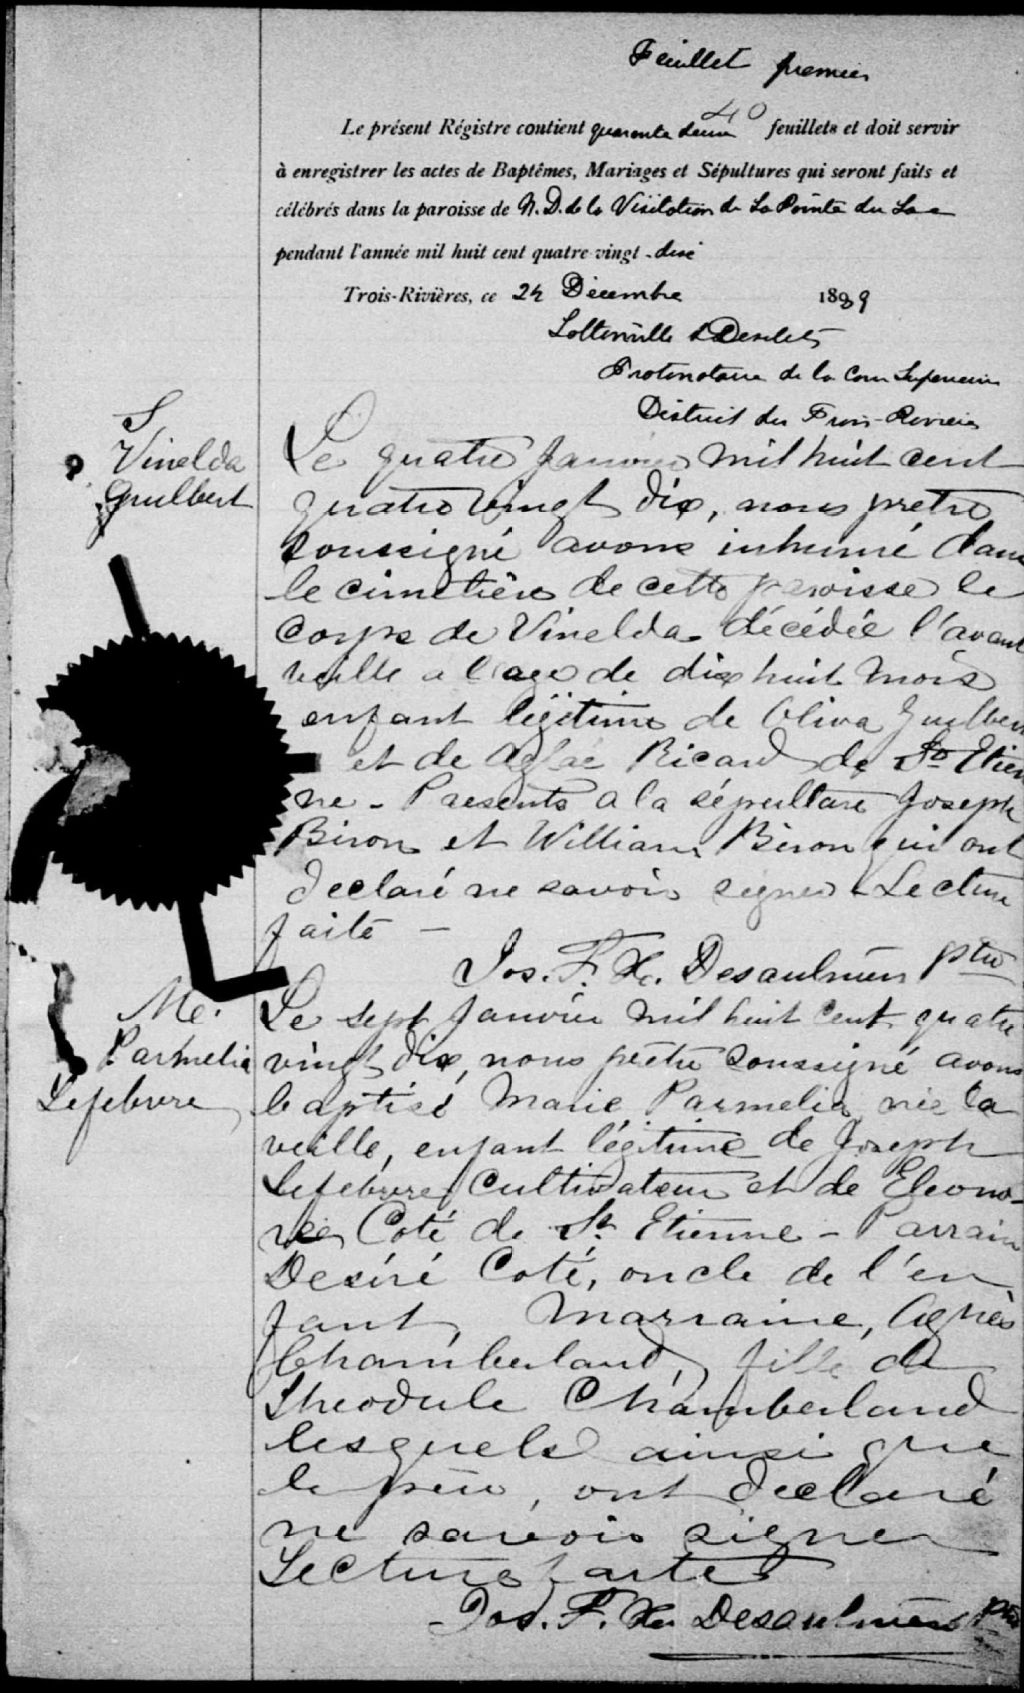 Feuillet premier
40
Le présent Régistre contient quarante deux feuillets et doit servir
à enregistrer les actes de Baptêmes, Mariages et Sépultures qui seront faits et
célébrés dans la paroisse de N. D. de la Visitation de La Pointe du Lac
pendant l'année mil huit cent quatre-vingt-dix
Trois-Rivières, ce 24 Décembre 1889
Lottinville & Desilets
Protonotaire de la Cour Superieure
District des Trois-Rivieres
S
Vinelda
Guilbert
Le quatre Janvier mil huit cent
quatre vingt dix, nous pretre
soussigné avons inhumé dans
le cimetière de cette paroisse le
corps de Vinelda décédée l'avant
veille a l'age de dix huit mois
enfant légitime de Oliva Guilbert
et de Aglaé Ricard de St Etien
ne - Presents a la sépulture Joseph
Biron et William Biron qui ont
declaré ne savoir signer - Lecture
faite -
Jos. F. X. Desaulniers ptre
Me.
Parmelia
Lefebvre
Le sept Janvier mil huit cent quatre
vingt dix, nous prêtre soussigné avons
baptisé Marie Parmelia née la
veille, enfant légitime de Joseph
Lefebvre Cultivateur et de Eleono-
re Coté de St. Etienne - Parrain
Desiré Coté, oncle de l'en
fant, Marraine, Agnès
Chamberland, fille de
Theodule Chamberland
lesquels ainsi que
le père, ont declaré
ne savoir signer
Lecture faite
Jos. F. X. Desaulniers ptre